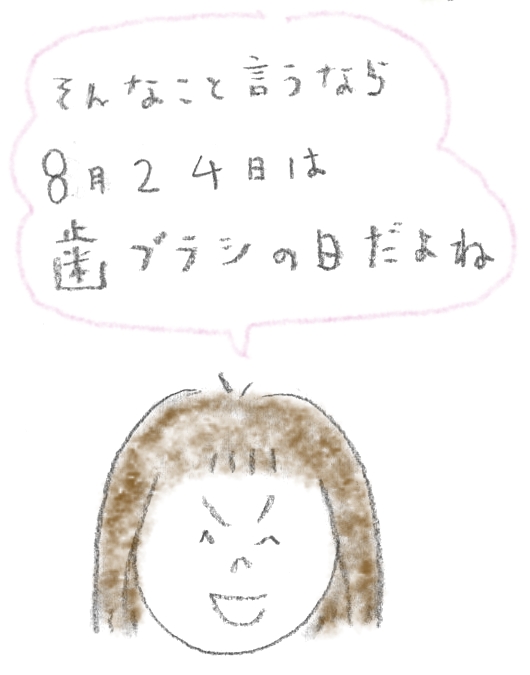 そんなこと言うなら
8月24日は
歯ブラシの日だよね